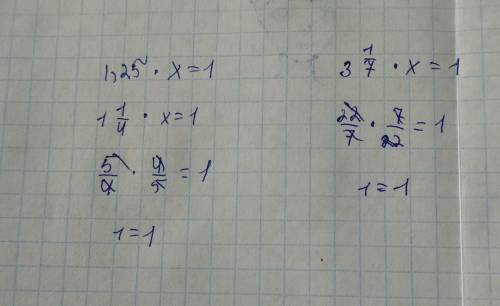 1,25 · x = 1
1 1/4 · x = 1
5/4 · 4/5 = 1
1 = 1
3 1/7 · x = 1
22/7 · 7/22 = 1
1 = 1